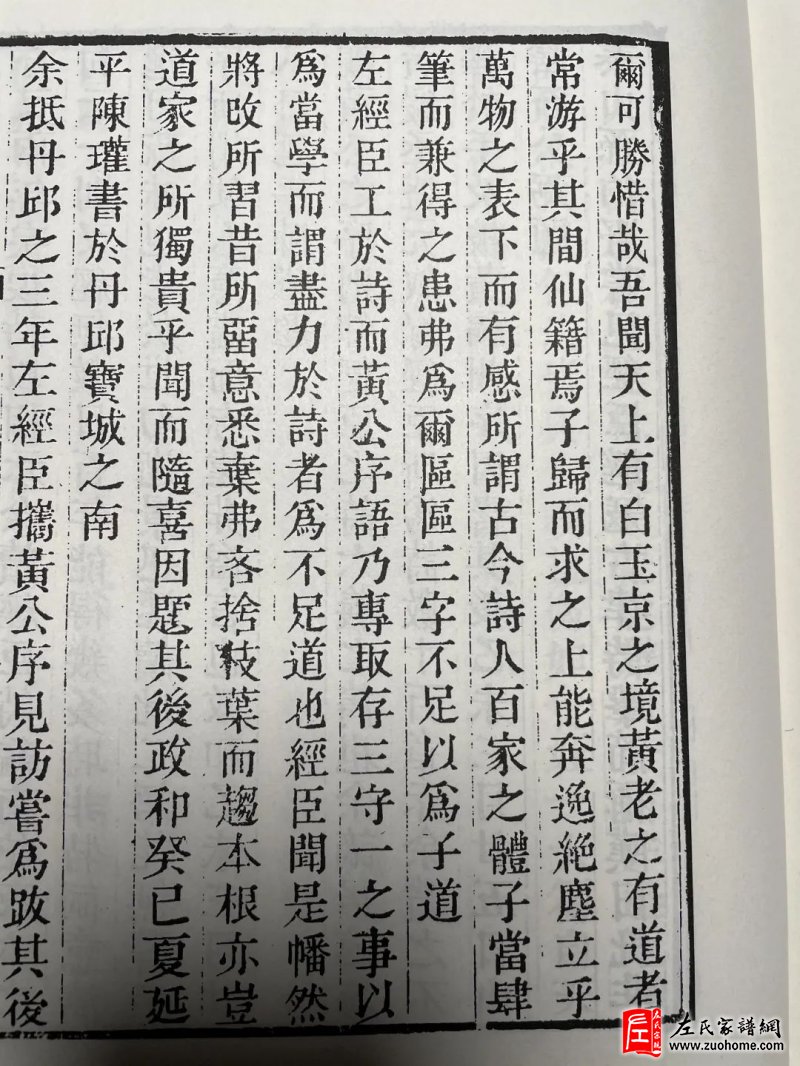 爾可勝惜哉吾聞天上有白玉京之境黃老之有道者
常游乎其間仙籍焉子歸而求之上能奔逸絕塵立乎
萬物之表下而有感所謂古今詩人百家之體子當肆
筆而兼得之患弗爲爾區區三字不足以爲子道
左經臣工於詩而黃公序語乃專取存三守一之事以
爲當學而謂盡力於詩者爲不足道也經臣聞是幡然
將改所習昔所畱意悉棄弗吝捨枝葉而趨本根亦豈
道家之所獨貴乎聞而隨喜因題其後政和癸巳夏延
平陳瓘書於丹邱寶城之南
余抵丹邱之三年左經臣攜黃公序見訪嘗爲跋其後
左氏家譜網
www.zuohome.com